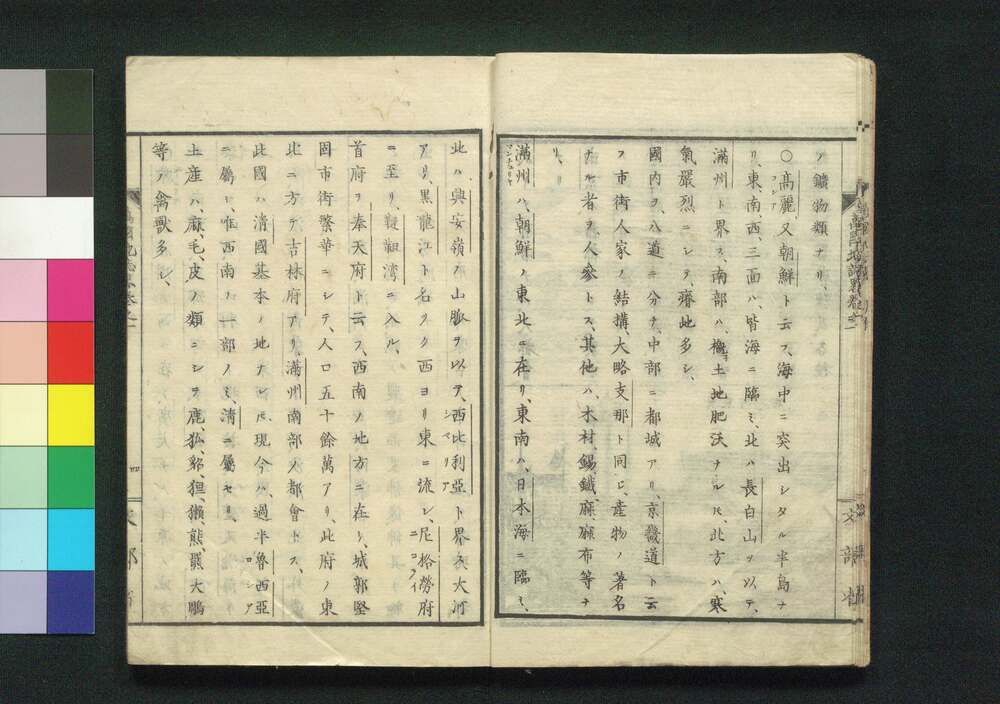 ノ鑛物類ナリ、
○高麗、又朝鮮ト云フ、海中ニ突出シタル半島ナ
リ、東、南、西、三面ハ、皆海ニ臨ミ、北ハ長白山ヲ以テ、
滿州ト界ス、南部ハ、概土地肥沃ナルモ、北方ハ、寒
氣嚴烈ニシテ、瘠地多シ、
國内ヲ八道ニ分チ、中部ニ都城アリ、京畿道ト云
フ市街人家ノ結搆、大略支那ト同シ、産物ノ著名
ナル者ヲ人參トス、其他ハ、木材、錫、鐵、麻、麻布等ナ
リ、
滿州ハ、朝鮮ノ東北ニ在リ、東南ハ、日本海ニ臨ミ、
此ハ興安嶺ノ山脈ヲ以テ、西比利亞ト界ス大河
アリ、黒龍江ト名ク、西ヨリ東ニ流レ、尼格勞府
ニ至リ、韃靼灣ニ入ル、
首府ヲ奉天府ト云フ、西南ノ地方ニ在リ、城郭堅
固市街繁華ニシテ、人口五十餘萬アリ、此府ノ東
北ニ方テ吉林府アリ、滿州南部ノ都會トス、
此國ハ清國基本ノ地ナレ𪜈、現今ハ、過半魯西亞
ニ屬シ、唯西南ノ一部ノミ、清ニ屬セリ、
土産ハ、麻、毛、皮ノ類ニシテ鹿、狐、貂、狚、獺、熊、羆、大鵰
等ノ禽獸多シ、